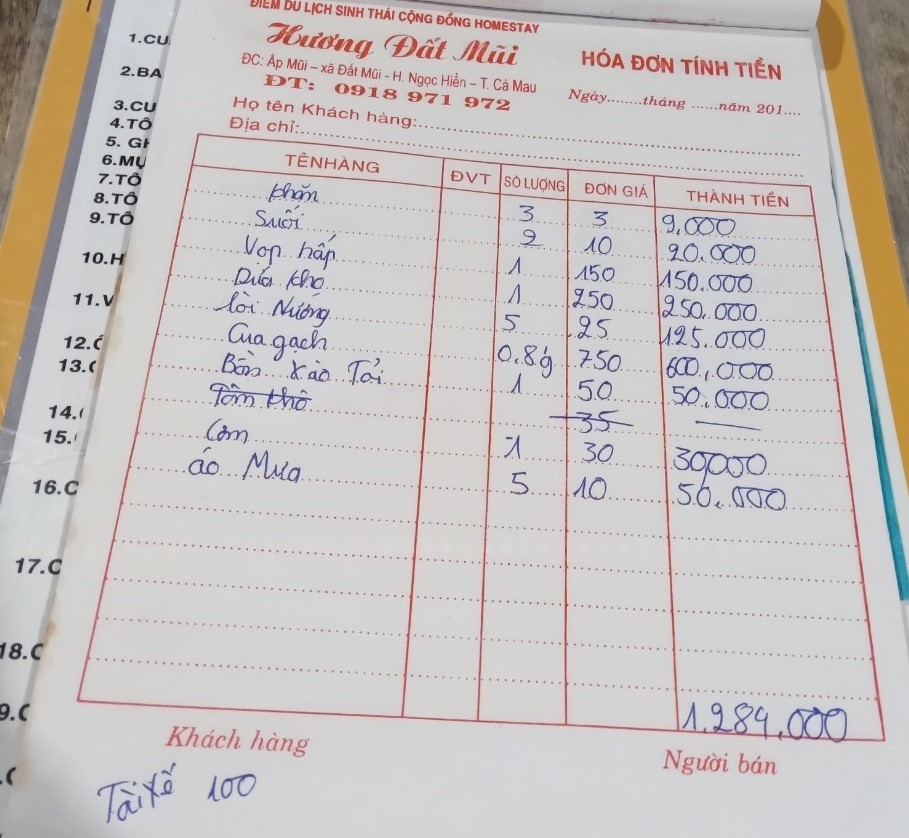 ĐIỂM DU LỊCH SINH THÁI CỘNG ĐỒNG HOMESTAY
Hương Đất Mũi
ĐC: Ấp Mũi – xã Đất Mũi - H. Ngọc Hiển – T. Cà Mau
ĐT: 0918 971 972
HÓA ĐƠN TÍNH TIỀN
Ngày........tháng ......năm 201....
Họ tên Khách hàng:
Địa chỉ:
TÊN HÀNG ĐVT SỐ LƯỢNG ĐƠN GIÁ THÀNH TIỀN
khăn 3 3 9.000
Suối 2 10 20.000
Vọp hấp 1 150 150.000
Dứa kho 1 250 250.000
lòi Nướng 5 25 125.000
Cua gạch 0.8g 750 600.000
Bồn Xào Tỏi 1 50 50.000
Tôm khô 35
Cơm 1 30 30000
áo Mưa 5 10 50.000
1.284.000
Khách hàng
Người bán
Tài xế 100
1.CU
2.BA
3.CU
4.TÔ
5. GH
6.MỰ
7.TÔ
8.TÔ
9.TÔ
10.H
11.V
12.C
13.C
14.
15.
16.C
17.C
18.C
9.C